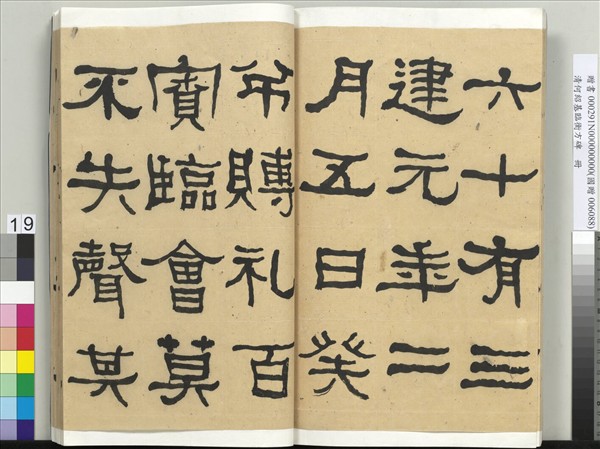 六十有三
建元年二
月五日癸
吊賻礼百
賓臨會莫
不失聲其
贈書 000291N000000000(國贈 006088)
清何紹基臨衡方碑 冊
19